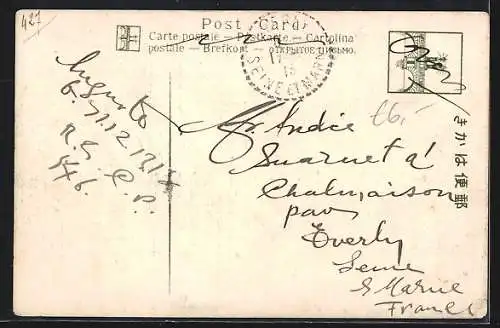 427
Post Card
Carte postale — Postkarte — Cartolina
postale — Brefkort — ОТКРЫТОЕ ПИСЬМО.
17
SEINE ET MARNE
€6,-
きかは便郵
Augusto
R.S.
Mr. André
Suarnet à
Chalmaison
par
Everly
Seine
& Marne
France